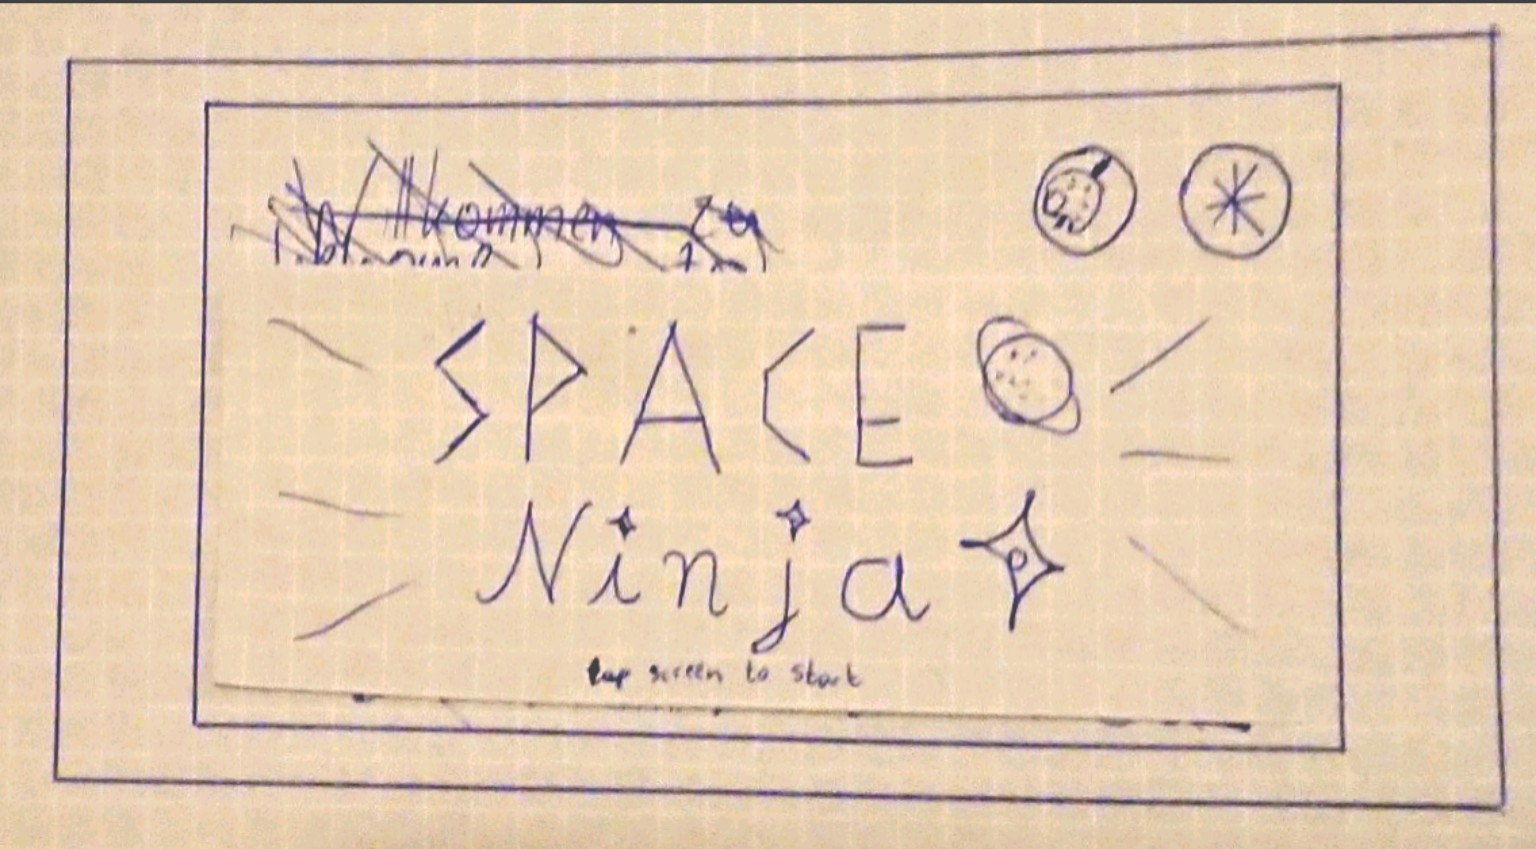 Willkommen zu
SPACE
Ninja
tap screen to start